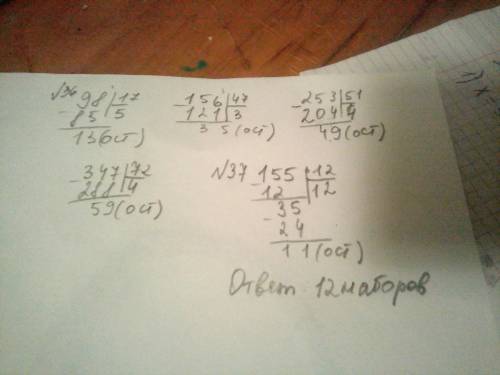 №36 98 | 17
- 85 | 5
13(ост)
- 156 | 47
121 | 3
35(ост)
- 253 | 51
204 | 4
49(ост)
- 347 | 72
288 | 4
59(ост)
№37 - 155 | 12
12 | 12
- 35
24
11(ост)
Ответ: 12 наборов
1)
x =